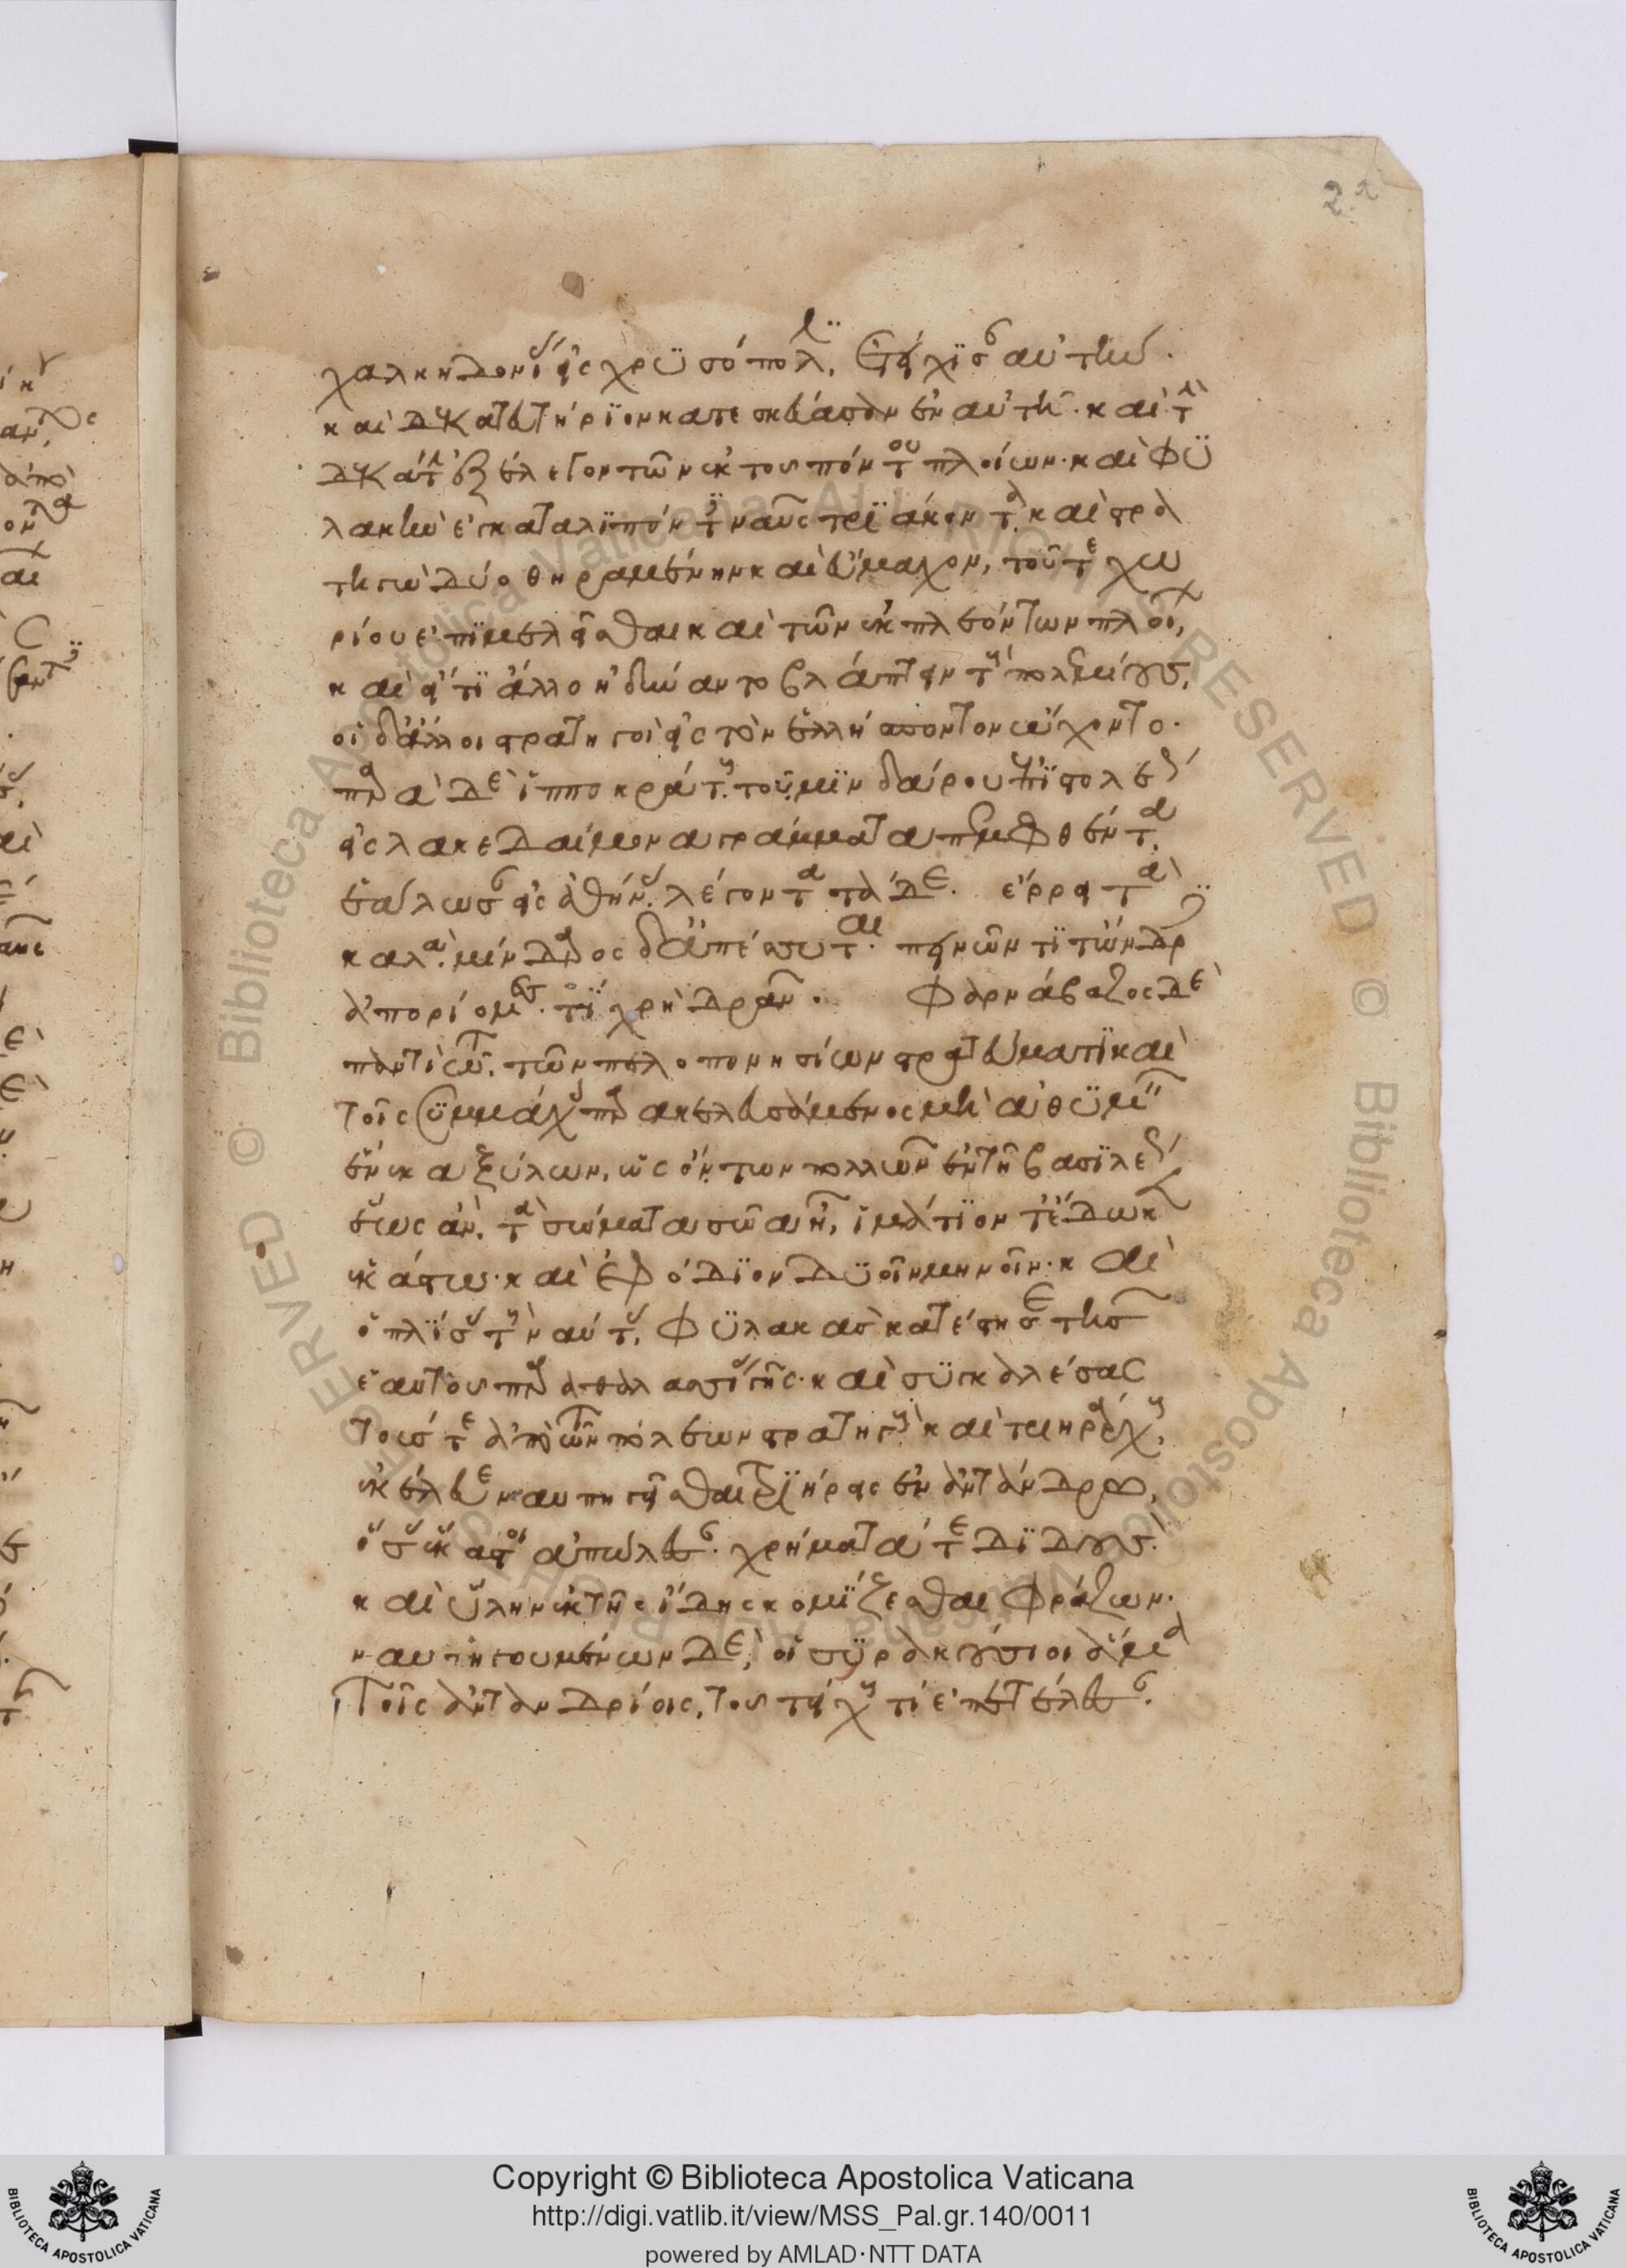 2
χαλκηδονίας εἰς χρυσόπολιν, ἐτείχισαν αὐτήν.
καὶ δεκατευτήριον κατεσκεύασαν ἐν αὐτῇ. καὶ τὴν
δεκάτην ἐξέλεγον τῶν ἐκ τοῦ πόντου πλοίων. καὶ φυ
λακὴν ἐγκαταλιπόντες ναῦς τριάκοντα καὶ στρα
τηγὼ δύο θηραμένην καὶ εὔμαχον, τοῦ τε χω
ρίου ἐπιμελεῖσθαι καὶ τῶν ἐκπλεόντων πλοίων,
καὶ εἴ τι ἄλλο ἠδύναντο βλάπτειν τοὺς πολεμίους,
οἱ δ' ἄλλοι στρατηγοὶ εἰς τὸν ἑλλήσποντον ὤχοντο.
παρὰ δὲ ἱπποκράτους τοῦ μινδάρου ἐπιστολέως
εἰς λακεδαίμονα γράμματα πεμφθέντα
ἑάλωσαν εἰς ἀθήνας λέγοντα τάδε. ἔρρει τὰ
καλά. μίνδαρος δ' ἀπέσσυται. πεινῶντι τὤνδρ
ἀπορίομες τί χρὴ δρᾶν. φαρνάβαζος δὲ
παντὶ τῷ τῶν πελοποννησίων στρατεύματι καὶ
τοῖς συμμάχοις παρακελευσάμενος μὴ ἀθυμεῖν
ἕνεκα ξύλων, ὡς ὄντων πολλῶν ἐν τῇ βασιλέως
ἕως ἂν τὰ σώματα σῶα ἦ, ἱμάτιόν τ' ἔδωκεν
ἑκάστῳ. καὶ ἐφόδιον δυοῖν μηνοῖν. καὶ
ὁπλίσας τοὺς ναύτας, φύλακας κατέστησε τῆς
ἑαυτοῦ παραθαλασσίας γῆς. καὶ συγκαλέσας
τούς τε ἀπὸ τῶν πόλεων στρατηγοὺς καὶ τριηράρχους,
ἐκέλευε ναυπηγεῖσθαι τριήρεις ἐν ἀντάνδρῳ,
ὅσας ἕκαστοι ἀπώλεσαν. χρήματά τε διδούς.
καὶ ὕλην ἐκ τῆς ἴδης κομίζεσθαι φράζων.
ναυπηγουμένων δὲ, οἱ συρακούσιοι ἅμα
τοῖς ἀντανδρίοις, τοῦ τείχους τι ἐπετέλεσαν.
Copyright © Biblioteca Apostolica Vaticana
http://digi.vatlib.it/view/MSS_Pal.gr.140/0011
powered by AMLAD·NTT DATA